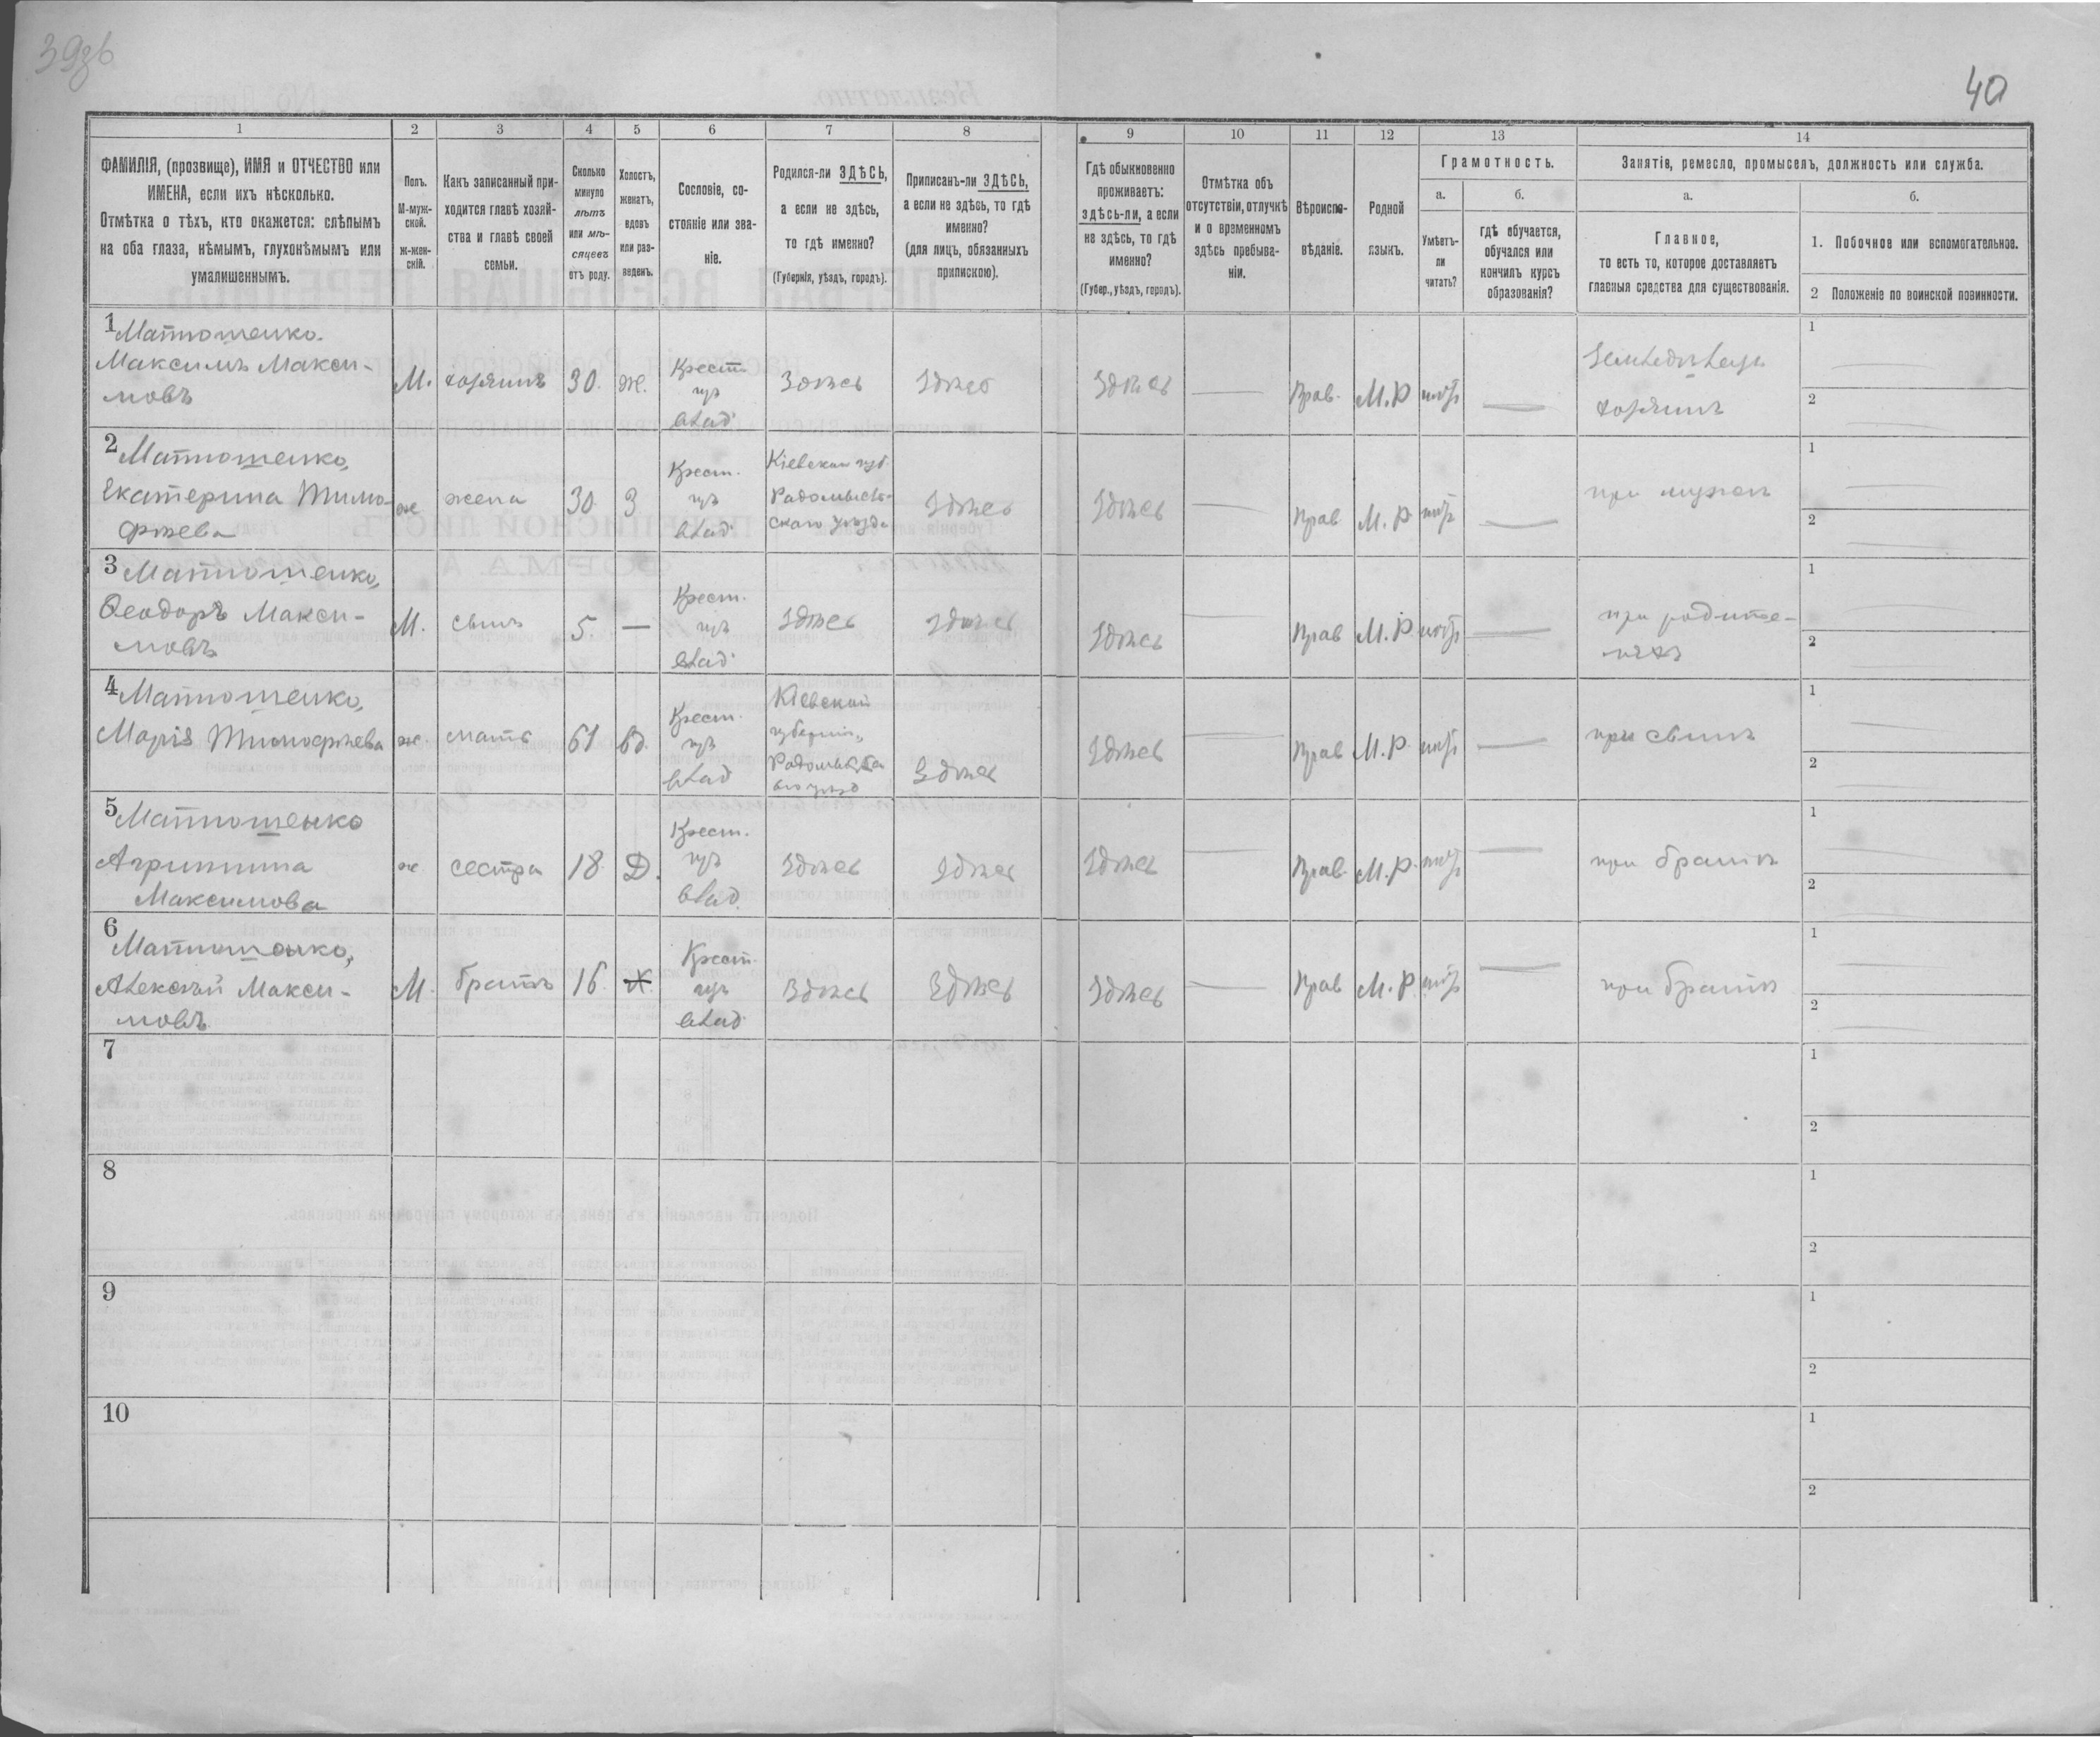 39зв
40
1
2
3
4
5
6
7
8
9
10
11
12
13
14
ФАМИЛІЯ, (прозвище), ИМЯ и ОТЧЕСТВО или
ИМЕНА, если ихъ нѣсколько.
Отмѣтка о тѣхъ, кто окажется: слѣпымъ
на оба глаза, нѣмымъ, глухонѣмымъ или
умалишеннымъ.
Полъ.
М-муж-
ской.
ж-жен-
скій.
Какъ записанный при-
ходится главѣ хозяй-
ства и главѣ своей
семьи.
Сколько
минуло
лѣтъ
или мѣ-
сяцевъ
отъ роду.
Холостъ,
женатъ,
вдовъ
или раз-
веденъ.
Сословіе, со-
стояніе или зва-
ніе.
Родился-ли ЗДѢСЬ,
а если не здѣсь,
то гдѣ именно?
(Губернія, уѣздъ, городъ).
Приписанъ-ли ЗДѢСЬ,
а если не здѣсь, то гдѣ
именно?
(для лицъ, обязанныхъ
припискою).
Гдѣ обыкновенно
проживаетъ:
здѣсь-ли, а если
не здѣсь, то гдѣ
именно?
(Губер., уѣздъ, городъ).
Отмѣтка объ
отсутствіи, отлучкѣ
и о временномъ
здѣсь пребыва-
ніи.
Вѣроиспо-
вѣданіе.
Родной
языкъ.
Грамотность.
а.
Умѣетъ-
ли
читать?
б.
гдѣ обучается,
обучался или
кончилъ курсъ
образованія?
Занятія, ремесло, промыселъ, должность или служба.
а.
Главное,
то есть то, которое доставляетъ
главныя средства для существованія.
б.
1. Побочное или вспомогательное.
2 Положеніе по воинской повинности.
1 Матюшенко.
Максимъ Макси-
мовъ
М.
хозяинъ
30.
ж.
Крест.
изъ
влад.
Здѣсь
Здѣсь
Здѣсь
—
Прав.
М.Р
—
Земледѣлецъ
хозяинъ
1
2
2 Матюшенко,
Екатерина Тимо-
фѣева
ж
жена
30
З
Крест.
изъ
влад.
Кіевская губ.
Радомысль-
скаго уѣзда
Здѣсь
Здѣсь
—
Прав.
М.Р.
—
при мужѣ
1
2
3 Матюшенко,
Ѳеодоръ Макси-
мовъ
М.
сынъ
5.
—
Крест.
изъ
влад.
Здѣсь
Здѣсь
Здѣсь
—
Прав
М.Р.
—
при родите-
ляхъ
1
2
4 Матюшенко,
Марія Тимофѣева
ж.
мать
61
вд.
Крест.
изъ
влад
Кіевской
губерніи,
Здѣсь
Здѣсь
—
Прав
М.Р.
—
при сынѣ
1
2
5 Матюшенко
Агрипина
Максимова
ж
сестра
18
Д.
Крест.
изъ
влад.
Здѣсь
Здѣсь
Здѣсь
—
Прав.
М.Р.
—
при братѣ
1
2
6 Матюшенко,
Алексѣй Макси-
мовъ
М.
братъ
16
Х.
Крест.
изъ
влад
Здѣсь
Здѣсь
Здѣсь
—
Прав
М.Р.
—
при братѣ
1
2
7
1
2
8
1
2
9
1
2
10
1
2